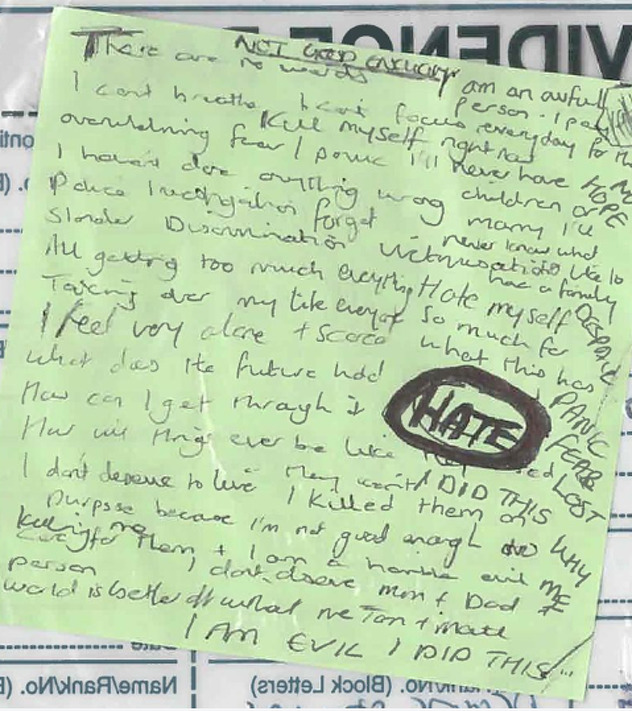 EVIDENCE
NOT GOOD ENOUGH
There are no words
I am an awful person. I pay
I cant breathe I cant focus everyday for that
overwhelming fear / panic
Kill myself right now
I'll never have children or
HOPE
I havent done anything wrong
marry I'll
never know what
Police Investigation forget
its like to
Slander Discrimination Victimisation
have a family
All getting too much everything
Hate myself
DESPAIR
Taking over my life everyday
so much for
what this has
I feel very alone + scared
PANIC
what does the future hold
How can I get through it
HATE
FEAR
How will things ever be like
LOST
I don't deserve to live
I DID THIS
I killed them on
purpose because I'm not good enough to
WHY
care for them + I am a horrible evil
ME
Killing me
person
I dont deserve mum + Dad +
world is better off without me
I AM EVIL I DID THIS
Name/Rank/No. (Block Letters)
Name/Rank/No.